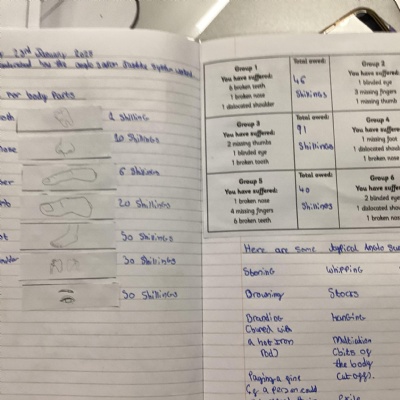 23rd January
for body parts
oth 2 Shillings
nose 10 Shillings
ger 6 Shillings
mb 20 Shillings
ot 50 Shillings
oulder 30 Shillings
50 Shillings
Group 1
You have suffered:
6 broken teeth
1 broken nose
1 dislocated shoulder
Total owed:
46
Shillings
Group 2
You have suffered:
1 blinded eye
3 missing fingers
1 missing thumb
Group 3
You have suffered:
2 missing thumbs
1 blinded eye
1 broken tooth
Total owed:
91
Shillings
Group 4
You have suffered:
1 missing foot
1 dislocated should
1 broken nose
Group 5
You have suffered:
1 broken nose
4 missing fingers
6 broken teeth
Total owed:
40
Shillings
Group 6
You have suffered:
2 blinded eye
1 dislocated shou
1 broken nos
Here are some typical Anglo Sax
Stoning Whipping
Drowning Stocks
Branding hanging
(burned with
a hot iron
Rod) Mutilation
(bits of
the body
cut off).
Paying a fine
Exile